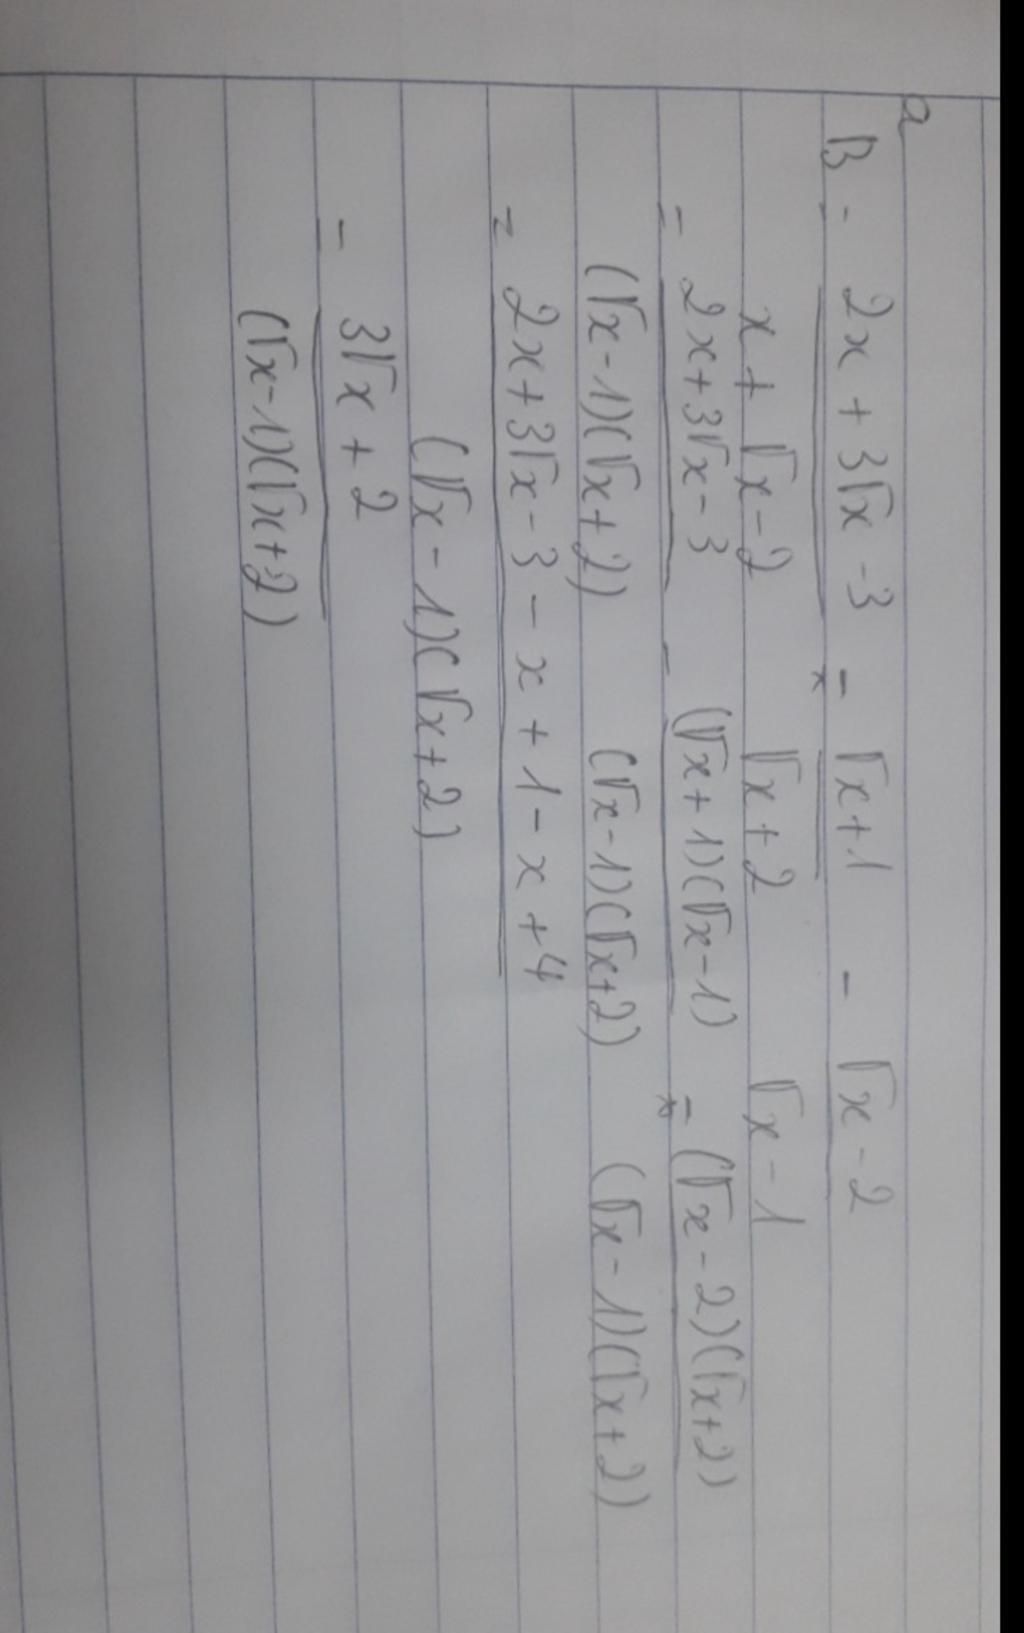 a
B = 2x + 3√x - 3 / x + √x - 2 - √x + 1 / √x + 2 - √x - 2 / √x - 1
= 2x + 3√x - 3 / (√x - 1)(√x + 2) - (√x + 1)(√x - 1) / (√x - 1)(√x + 2) - (√x - 2)(√x + 2) / (√x - 1)(√x + 2)
= 2x + 3√x - 3 - x + 1 - x + 4 / (√x - 1)(√x + 2)
= 3√x + 2 / (√x - 1)(√x + 2)